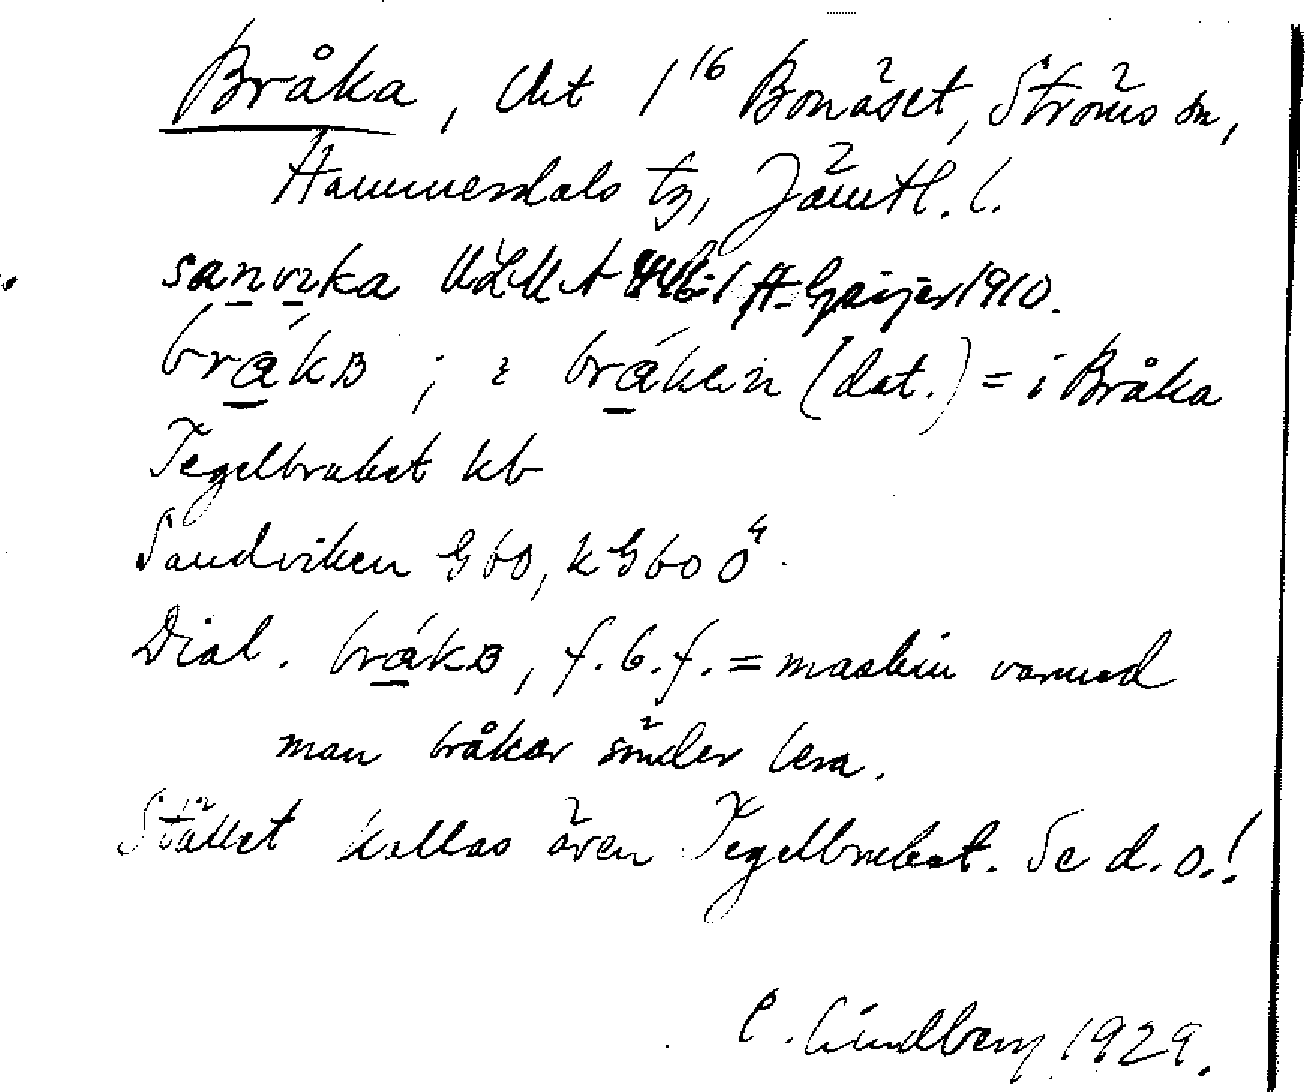 Bråka, Üt 1¹⁶ Bonäset, Ströms sn,
Hammerdals tg, Jämtl. l.
sanvika ULMA 446:1 H. Geijer 1910.
brákɞ ; ı bráken (dat.) = i Bråka
Tegelbruket kb
Sandviken G60, k G60 Ö⁴.
Dial. brákɞ, f. b. f. = maskin varmed
man bråkar sönder lera.
Stället kallas även Tegelbruket. Se d. o.!
E. Lindberg 1929.